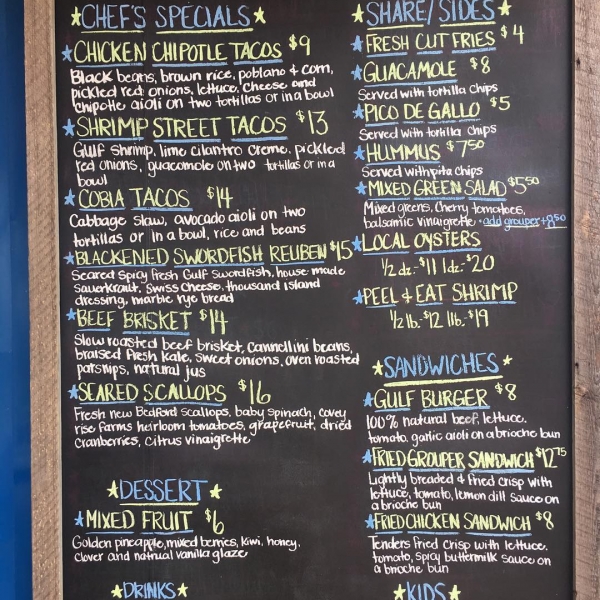 CHEF'S SPECIALS
CHICKEN CHIPOTLE TACOS $9
Black beans, brown rice, poblano & corn,
pickled red onions, lettuce, cheese and
chipotle aioli on two tortillas or in a bowl
SHRIMP STREET TACOS $13
Gulf shrimp, lime cilantro creme, pickled
red onions, guacamole on two tortillas or in a
bowl
COBIA TACOS $14
Cabbage slaw, avocado aioli on two
tortillas or in a bowl, rice and beans
BLACKENED SWORDFISH REUBEN $15
Seared spicy fresh Gulf swordfish, house made
sauerkraut, swiss cheese, thousand island
dressing, marble rye bread
BEEF BRISKET $14
Slow roasted beef brisket, cannellini beans,
braised fresh kale, sweet onions, oven roasted
parsnips, natural jus
SEARED SCALLOPS $16
Fresh new Bedford scallops, baby spinach, covey
rise farms heirloom tomatoes, grapefruit, dried
cranberries, citrus vinaigrette
DESSERT
MIXED FRUIT $6
Golden pineapple, mixed berries, kiwi, honey,
clover and natrual vanilla glaze
DRINKS
SHARE/SIDES
FRESH CUT FRIES $4
GUACAMOLE $8
Served with tortilla chips
PICO DE GALLO $5
Served with tortilla chips
HUMMUS $7.50
Served with pita chips
MIXED GREEN SALAD $5.50
Mixed greens, cherry tomatoes,
balsamic vinaigrette · add grouper +8.50
LOCAL OYSTERS
1/2 dz.-$11 1dz.-$20
PEEL & EAT SHRIMP
1/2 lb.-$12 1lb.-$19
SANDWICHES
GULF BURGER $8
100% natural beef, lettuce,
tomato, garlic aioli on a brioche bun
FRIED GROUPER SANDWICH $12.75
Lightly breaded & fried crisp with
lettuce, tomato, lemon dill sauce on
a brioche bun
FRIED CHICKEN SANDWICH $8
Tenders fried crisp with lettuce,
tomato, spicy buttermilk sauce on
a brioche bun
KIDS